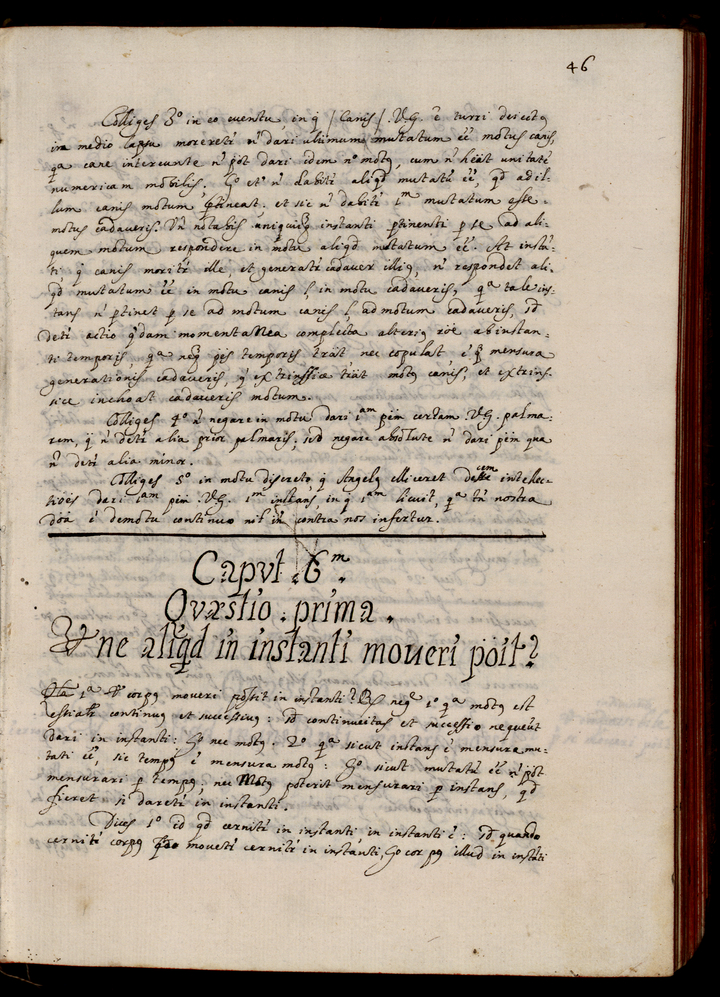 46
Colliges 3º in eo euentu in q̃ /Canis/ V.G. è turri deiectꝯ
in medio lapsu moreretr̃ ñ dari ultimum mutatum ẽẽ motus canis,
qa cane intereunte ñ põt dari idem nº motꝯ, cum ñ heat unitatẽ
numericam mobilis. Go etº ñ dabitr̃ aliqd mutatũ ẽẽ, qd ad il-
lum canis motum ptineat: et sic ñ dabitr̃ 1m mutatum esse
motus cadaueris. Vñ notabis unicuiqꝫ instanti ptinenti p se ad ali-
quem motum respondere in motu aliqd mutatum ẽẽ. At instã-
ti q̃ canis moritr̃ ille, et generatr̃ cadauer illiꝯ, ñ respondet ali-
qd mutatum ẽẽ in motu canis l in motu cadaueris, qa tale ins-
tans ñ ptinet p se ad motum canis l ad motum cadaueris, sd
detr̃ actio q̃dam momentanea complecta alteriꝯ rõe ab instan-
ti temporis, qa neqꝫ ptes temporis trãt nec copulat, ẽ qꝫ mensura
generationis cadaueris, q̃ extrinssica trãt motꝯ canis, et extrins-
sice inchoat cadaueris motum.
Colliges 4º ñ negare in motu dari 1am ptẽm certam V.G. palma-
rem, q̃ ñ detr̃ alia prior palmaris, sed negare absolute ñ dari ptẽm qua
ñ detr̃ alia minor.
Colliges 5º in motu discreto q̃ Angelꝯ elliceret decem intelec-
tiões dari 1am ptẽm V.G. 1m instans, in q̃ 1am elicuit, qa tñ nostra
dõa ẽ de motu continuo nil in contra nos infertur.
Capvt .6m.
Qvæstio . prima .
Vt ne aliqd in instanti moueri põit?
Qta 1a Vt corpꝯ moueri possit in instanti? R neqe 1º qa motꝯ est
essialr̃ continuꝯ et successiuꝯ: sd continueitas et successio nequeũt
dari in instanti: Go nec motꝯ. 2º qa sicut instans ẽ mensura mu-
tati ẽẽ, sic tempꝯ ẽ mensura motꝯ: Go sicut mutatũ ẽẽ ñ põt
mensurari p tempꝯ; nec Motꝯ poterit mensurari p instans, qd
fieret si daretr̃ in instanti.
Dices 1º id qd cernitr̃ in instanti in instanti ẽ: sd quando
cernitr̃ corpꝯ qdo mouetr̃ cernitr̃ in instanti, Go corpꝯ illud in instãti